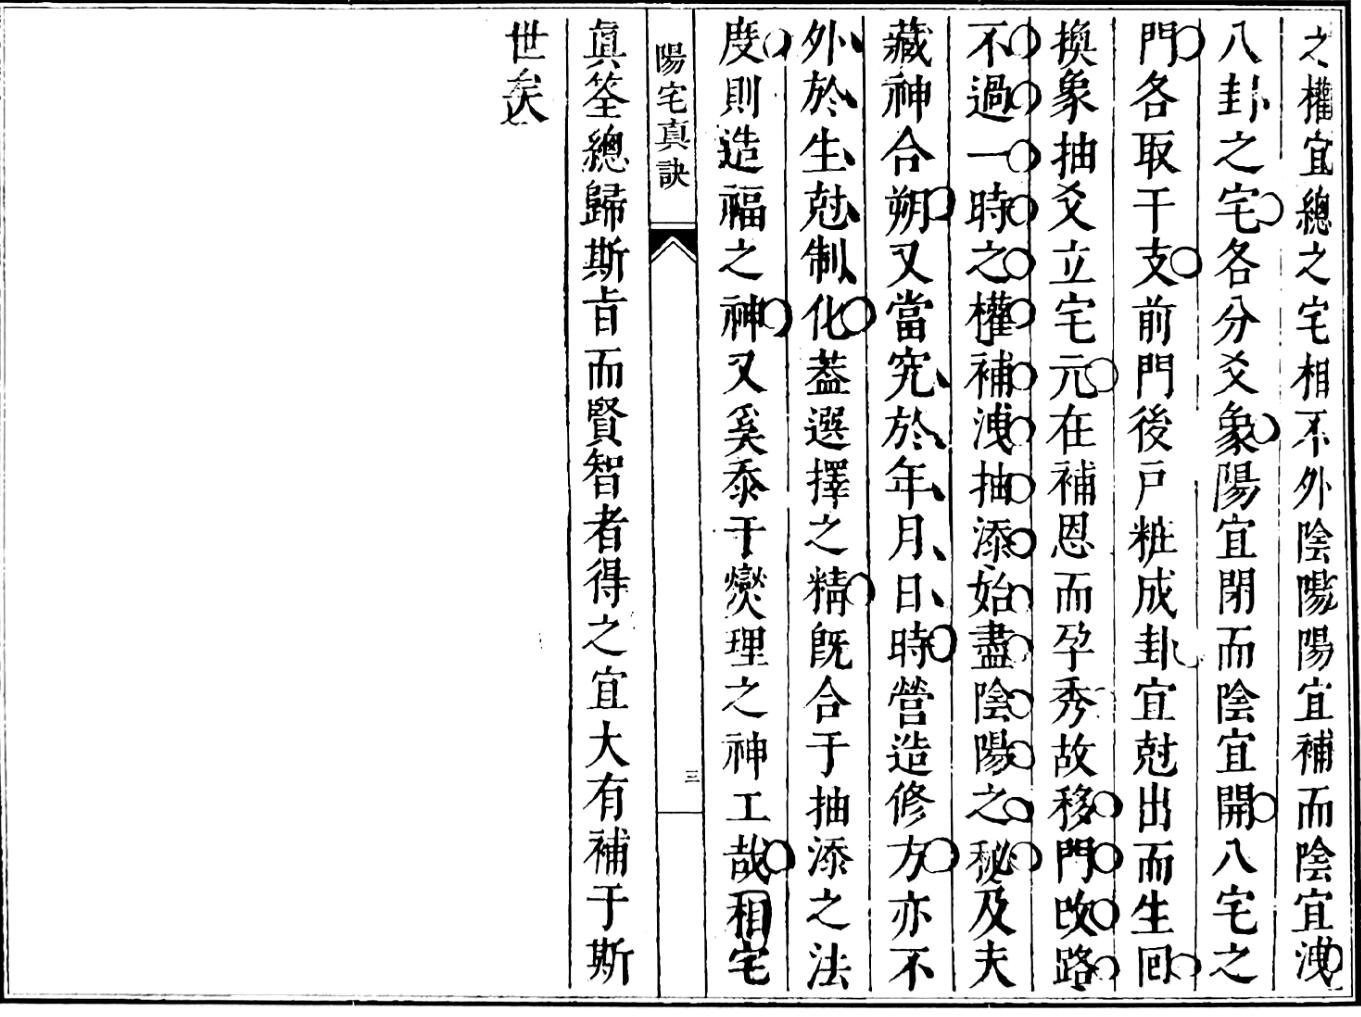 之權宜總之宅相不外陰陽陽宜補而陰宜洩
八卦之宅各分爻象陽宜閉而陰宜開八宅之
門各取干支前門後戸粧成卦宜尅出而生囘
換象抽爻立宅元在補恩而孕秀故移門改路
不過一時之權補洩抽添始盡陰陽之秘及夫
藏神合朔又當究於年月日時營造修方亦不
外於生尅制化葢選擇之精旣合于抽添之法
度則造福之神又奚忝于爕理之神工哉相宅
陽宅真訣
三
眞筌總歸斯㫖而賢智者得之宜大有補于斯
世矣